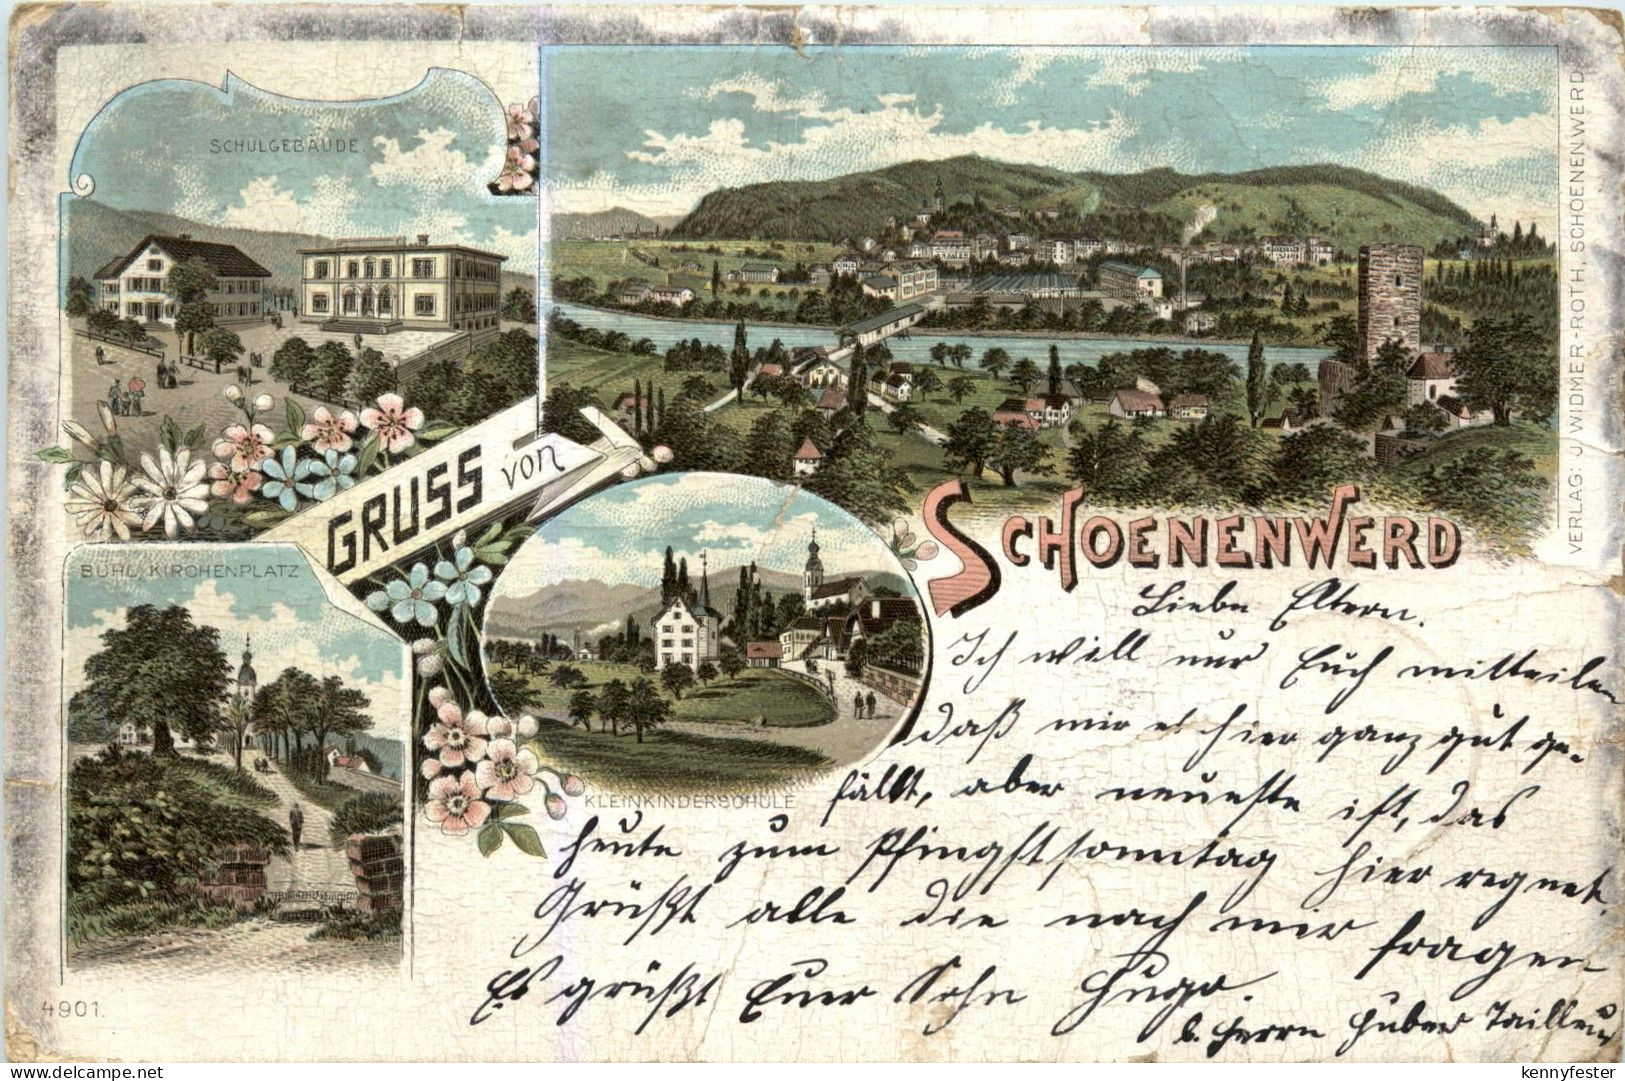 SCHULGEBÄUDE.
GRUSS von
SCHOENENWERD
VERLAG: J. WIDMER-ROTH, SCHOENENWERD.
BÜHL/KIRCHENPLATZ
KLEINKINDERSCHULE
Liebe Eltern.
Ich will nur Euch mitteilen
daß mir es hier ganz gut ge-
fällt, aber neueste ist, das
heute zum Pfingstsonntag hier regnet.
Grüßt alle die nach mir fragen
Es grüßt Euer Sohn Hugo.
b. Herrn Huber Tailleur
4901.
kennyfester